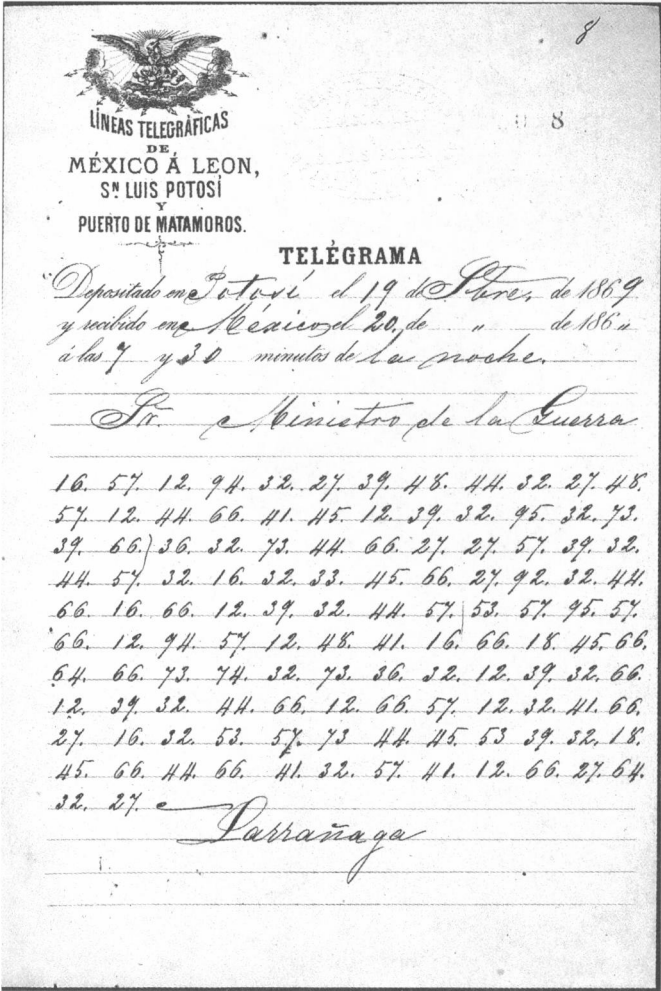 8
8
LÍNEAS TELEGRÁFICAS
DE
MÉXICO Á LEON,
SN LUIS POTOSÍ
Y
PUERTO DE MATAMOROS.
TELÉGRAMA
Depositado en Potosí el 19 de Sbre. de 1869
y recibido en México el 20. de " de 186 "
á las 7 y 30 minutos de la noche.
Sr. Ministro de la Guerra
16. 57. 12. 94. 32. 27. 39. 48. 44. 32. 27. 48.
57. 12. 44. 66. 41. 45. 12. 39. 32. 95. 32. 73.
39. 66.) 36. 32. 73. 44. 66. 27. 27. 57. 39. 32.
44. 57. 32. 16. 32. 33. 45. 66. 27. 92. 32. 44.
66. 16. 66. 12. 39. 32. 44. 57. 53. 57. 95. 57.
66. 12. 94. 57. 12. 48. 41. 16. 66. 18. 45. 66.
64. 66. 73. 74. 32. 73. 36. 32. 12. 39. 32. 66.
12. 39. 32. 44. 66. 12. 66. 57. 12. 32. 41. 66.
27. 16. 32. 53. 57. 73 44. 45. 53 39. 32. 18.
45. 66. 44. 66. 41. 32. 57. 41. 12. 66. 27. 64.
32. 27.
Larrañaga